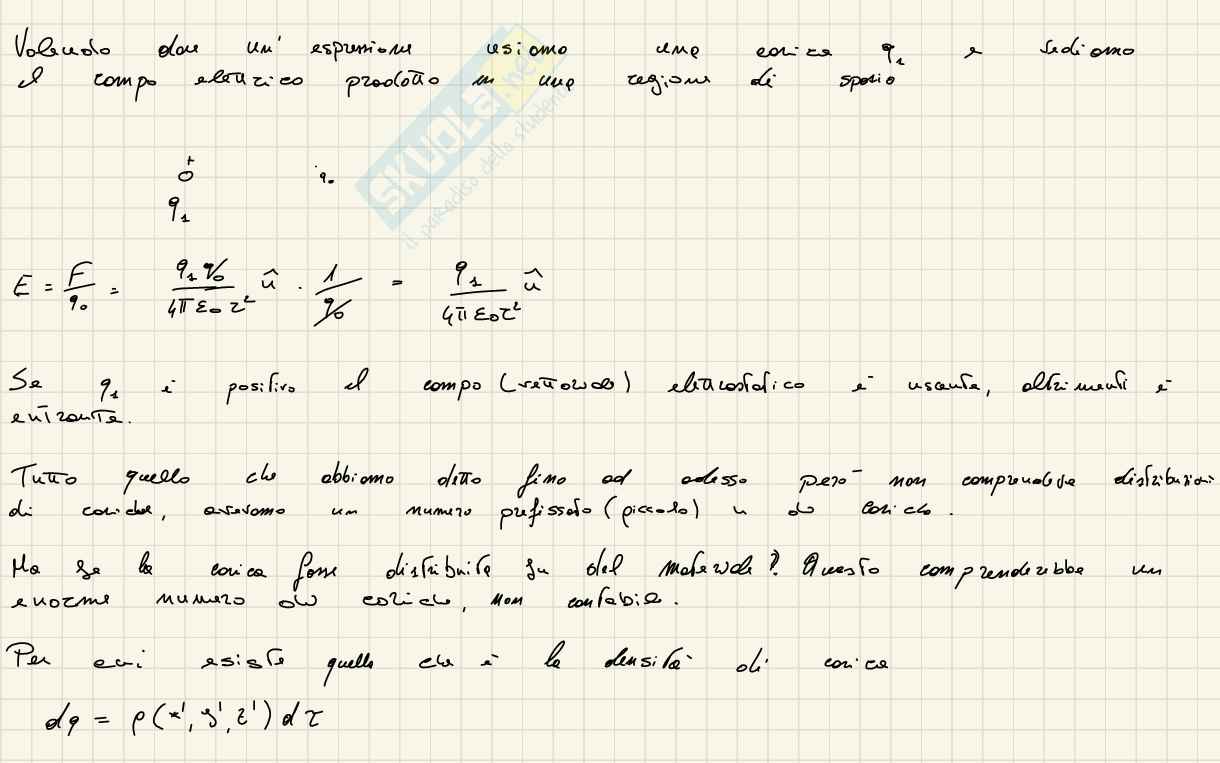 Volendo dare un' espressione usiamo una carica q₁ e vediamo
il campo elettrico prodotto in una regione di spazio
SKUOLA.net
il paradiso dello studente
+
q₁
q₀
E = F/q₀ = q₁q₀/4πε₀r² û · 1/q₀ = q₁/4πε₀r² û
Se q₁ è positivo il campo (vettoriale) elettrostatico è uscente, altrimenti è
entrante.
Tutto quello che abbiamo detto fino ad adesso però non comprendeva distribuzioni
di cariche, avevamo un numero prefissato (piccolo) n di cariche.
Ma se la carica fosse distribuita su del materiale? Questo comprenderebbe un
enorme numero di cariche, non contabile.
Per cui esiste quella che è la densità di carica
dq = ρ(x', y', z') dτ